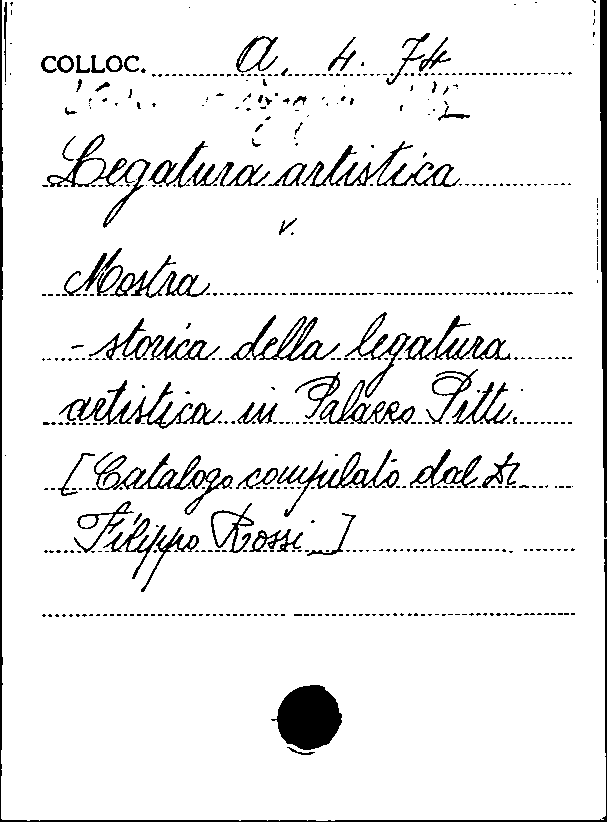 COLLOC. A. 4. 74
Legatura artistica
v.
Mostra
- storica della legatura
artistica in Palazzo Pitti.
[Catalogo compilato dal Dr
Filippo Rossi]